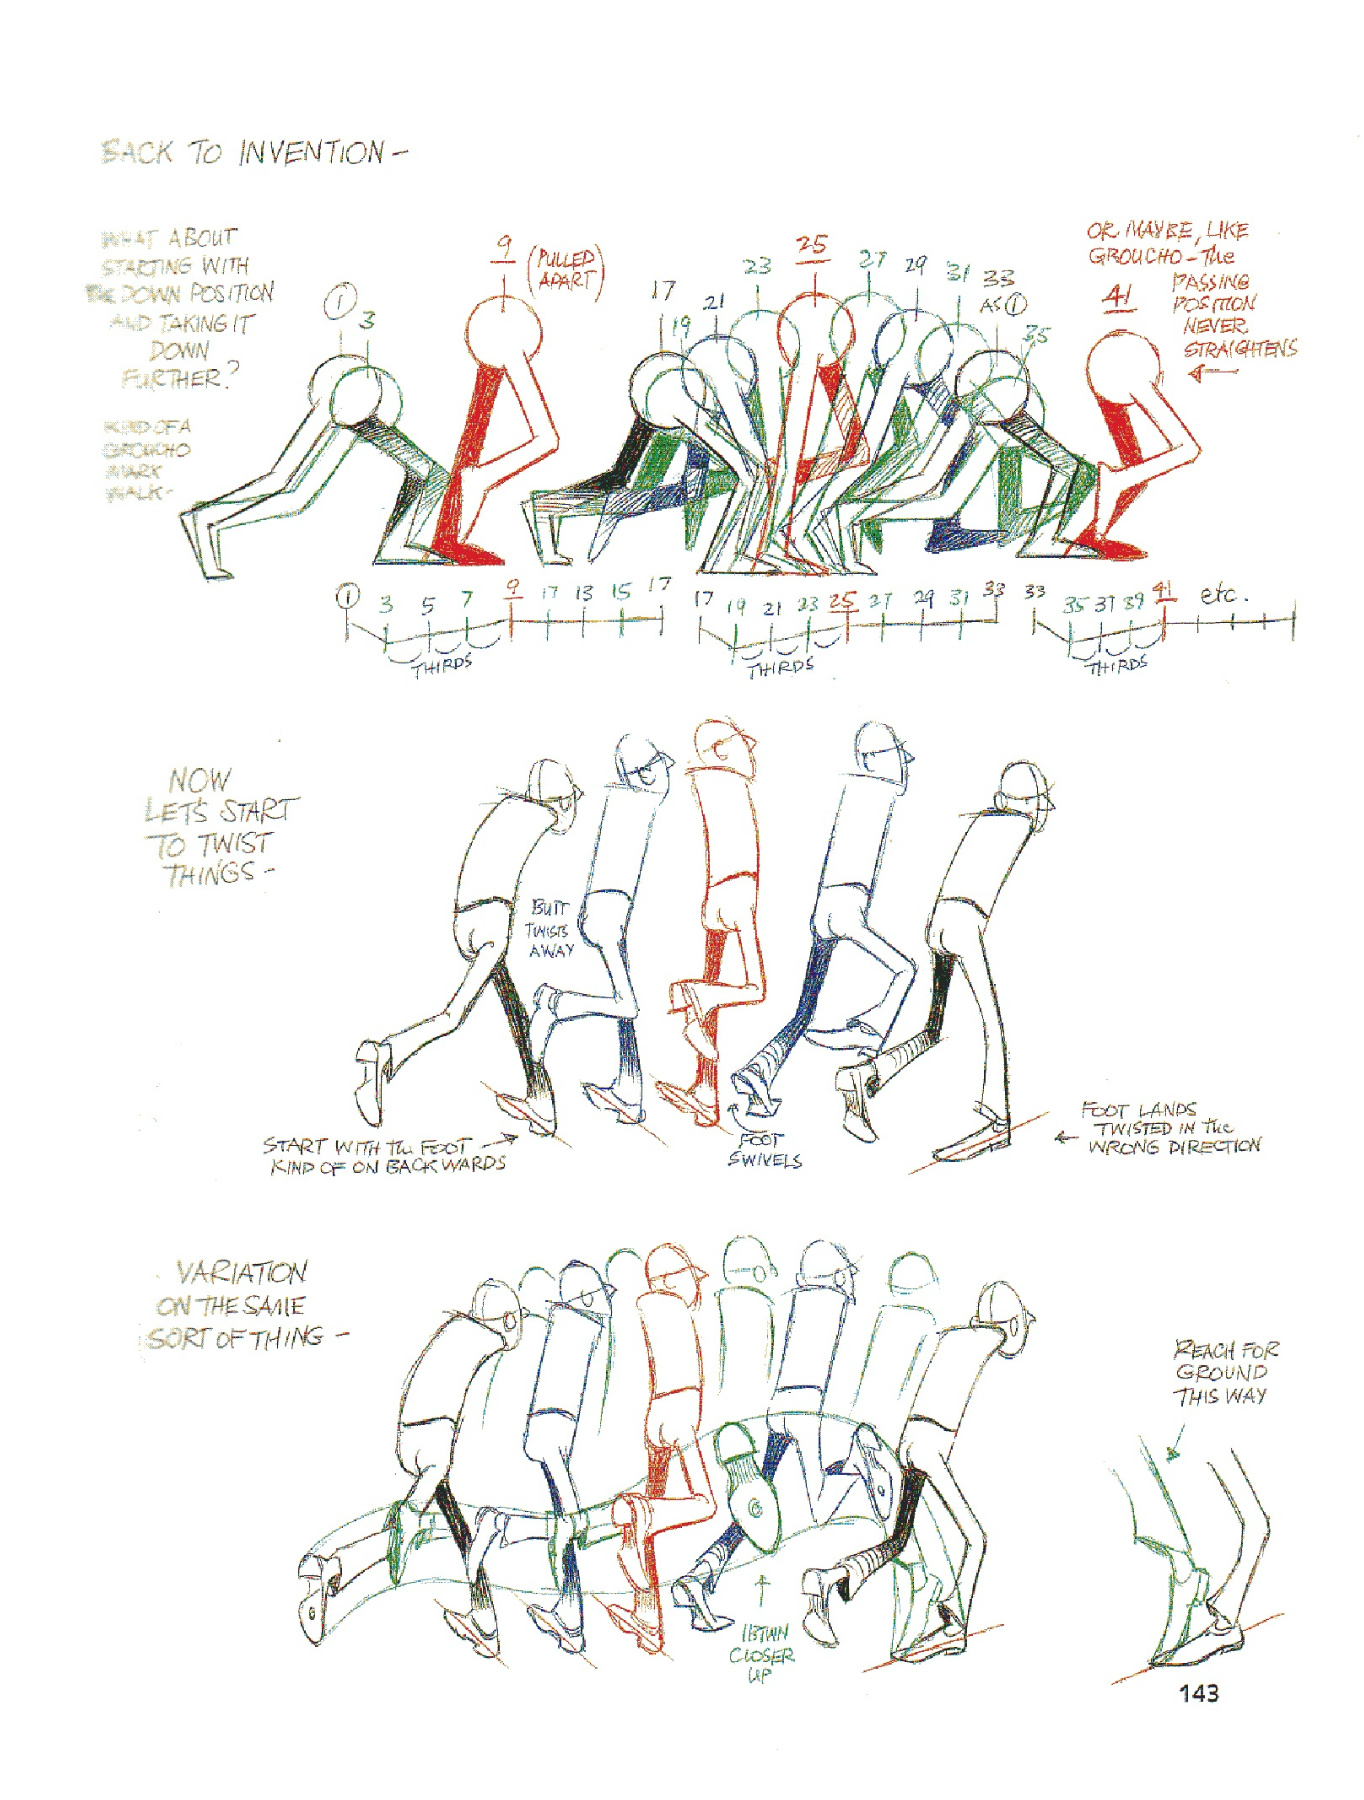 BACK TO INVENTION -
WHAT ABOUT
STARTING WITH
THE DOWN POSITION
AND TAKING IT
DOWN
FURTHER?
KIND OF A
GROUCHO
MARK
WALK -
1
3
9
(PULLED
APART)
17
19
21
23
25
27
29
31
33
AS 1
35
OR MAYBE, LIKE
GROUCHO - the
PASSING
POSITION
NEVER
STRAIGHTENS
41
1 3 5 7 9 17 13 15 17
THIRDS
17 19 21 23 25 27 29 31 33
THIRDS
33 35 37 39 41 etc.
THIRDS
NOW
LET'S START
TO TWIST
THINGS -
BUTT
TWISTS
AWAY
START WITH the FOOT
KIND OF ON BACKWARDS
FOOT
SWIVELS
FOOT LANDS
TWISTED IN the
WRONG DIRECTION
VARIATION
ON THE SAME
SORT OF THING -
REACH FOR
GROUND
THIS WAY
IBTWN
CLOSER
UP
143